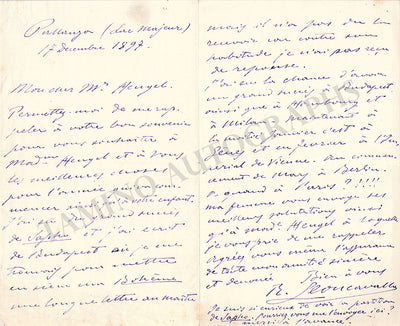 Pallanza (Lac majeur)
17 Decembre 1897
Mon cher Mr Heugel.
Permettez-moi de me rap-
peler à votre bon souvenir
pour vous souhaiter à
Madme Heugel et à vous
les meilleures choses
pour l'année qui
mencer
j'ai su le grand succès
de Sapho et j'ai écrit
de Budapest où je me
trouvais pour mettre
en scène ma Bohème
une longue lettre au maître
mais il n'a pas du la
recevoir car contre son
habitude je n'ai pas reçu
de réponse.
J'ai eu la chance d'avoir
un grand succès à Budapest
ainsi que à Hambourg et
à Milan. maintenant à
Janvier c'est à
et en février à l'Im-
perial de Vienne. Au commen-
cement de Mars à Berlin.
à quand à Paris? !!!!
ma femme vous envoye ses
meilleures salutations ainsi
qu'à Madme Heugel à laquelle
je vous prie de me rappeler
agréez vous même l'assurance
de toute mon amitié sincère
et dévouée Bien à vous
R. Leoncavallo
Je suis si curieux de voir la partition
de Sapho. Pouvez vous me l'envoyer ici?
merci à l'avance
TAMINO AUTOGRAPHS